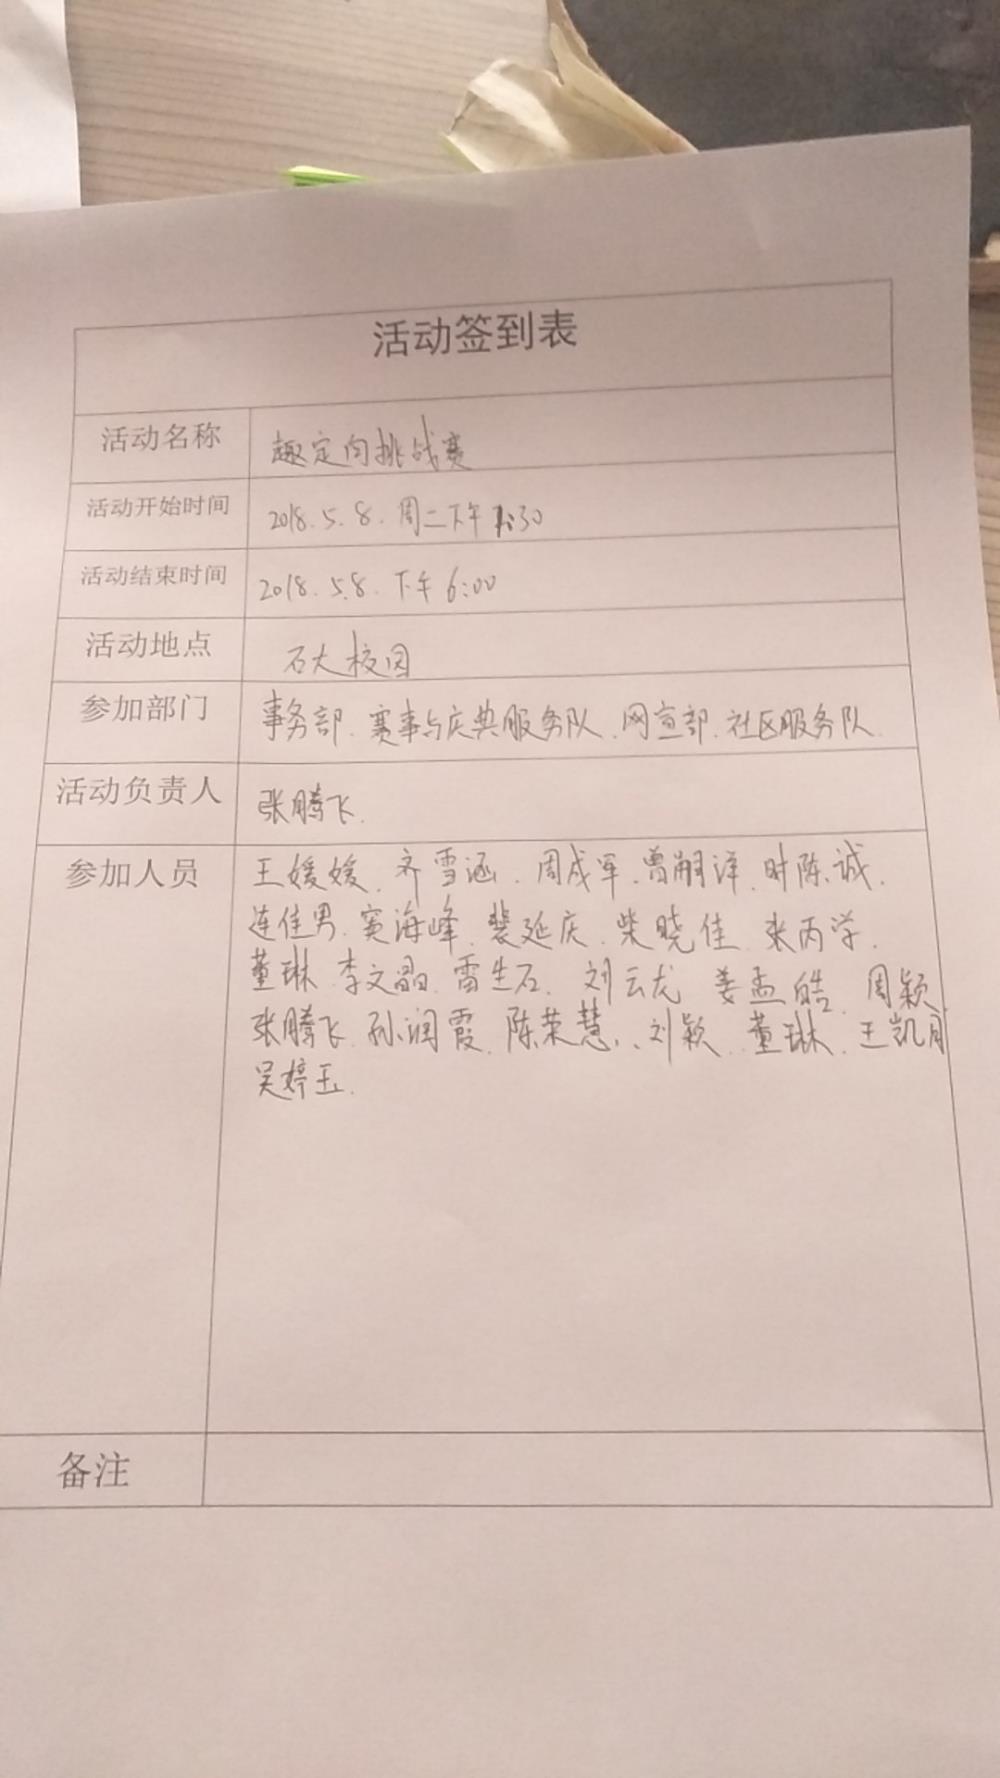 活动签到表
活动名称 趣定向挑战赛
活动开始时间 2018.5.8.周二下午1:30
活动结束时间 2018.5.8.下午6:00
活动地点 石大校园
参加部门 事务部、赛事与庆典服务队、网宣部、社区服务队
活动负责人 张腾飞
参加人员 王媛媛、齐雪涵、周成军、曾嗣洋、时陈诚、
连佳男、窦海峰、裴延庆、柴晓佳、张丙学、
董琳、李文晶、雷生石、刘云龙、姜孟皓、周颖
张腾飞、孙润霞、陈荣慧、刘颖、董琳、王凯月
吴婷玉
备注